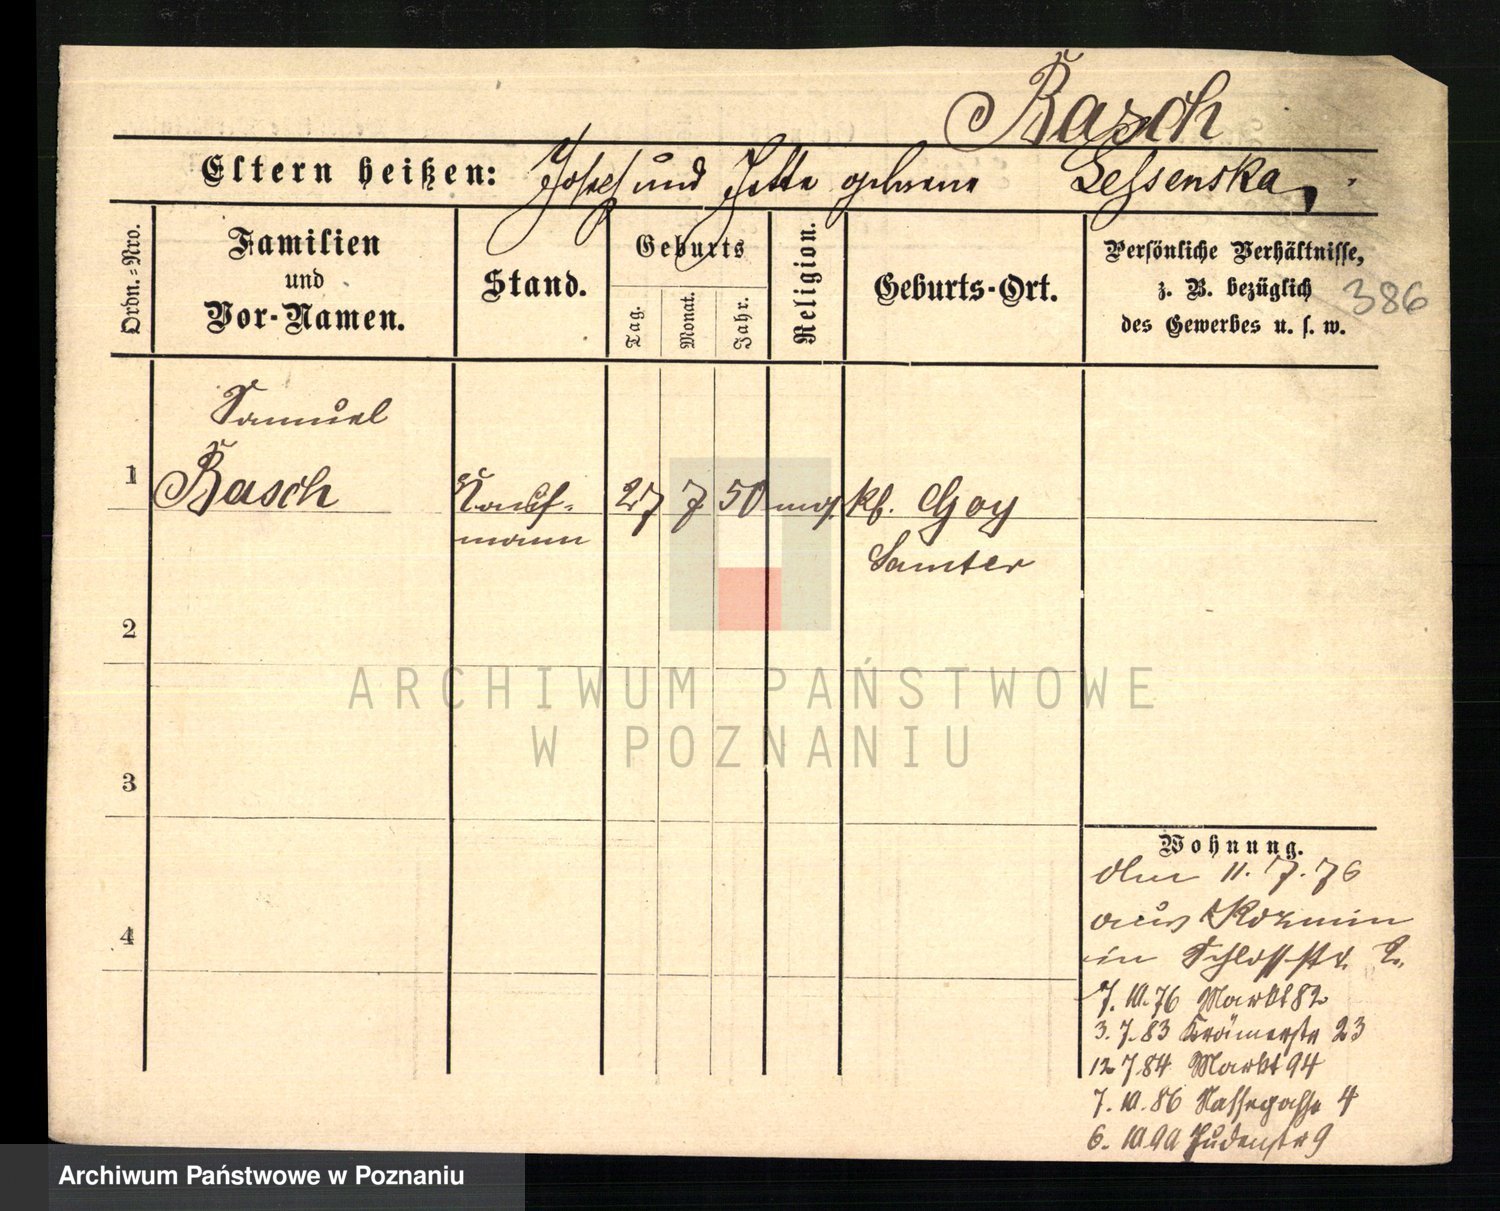 Basch
Eltern heißen: Josef und Jette geborene Lessenska,
Ordn.-Nro.
Familien und Vor-Namen.
Stand.
Geburts
Tag.
Monat.
Jahr.
Religion.
Geburts-Ort.
Persönliche Verhältnisse,
z. B. bezüglich
des Gewerbes u. s. w.
386
1
Samuel
Basch
Kauf-
mann
27
7
50
mos.
Goy
Samter
2
3
4
Wohnung.
den 11. 7. 76
aus Kozmin
in Schlossstr. 2.
7. 10. 76 Markt 82
3. 7. 83 Krämerstr 23
12 7 84 Markt 94
7. 10. 86 Nassegasse 4
6. 10. Judenstr 9
ARCHIWUM PAŃSTWOWE
W POZNANIU
Archiwum Państwowe w Poznaniu